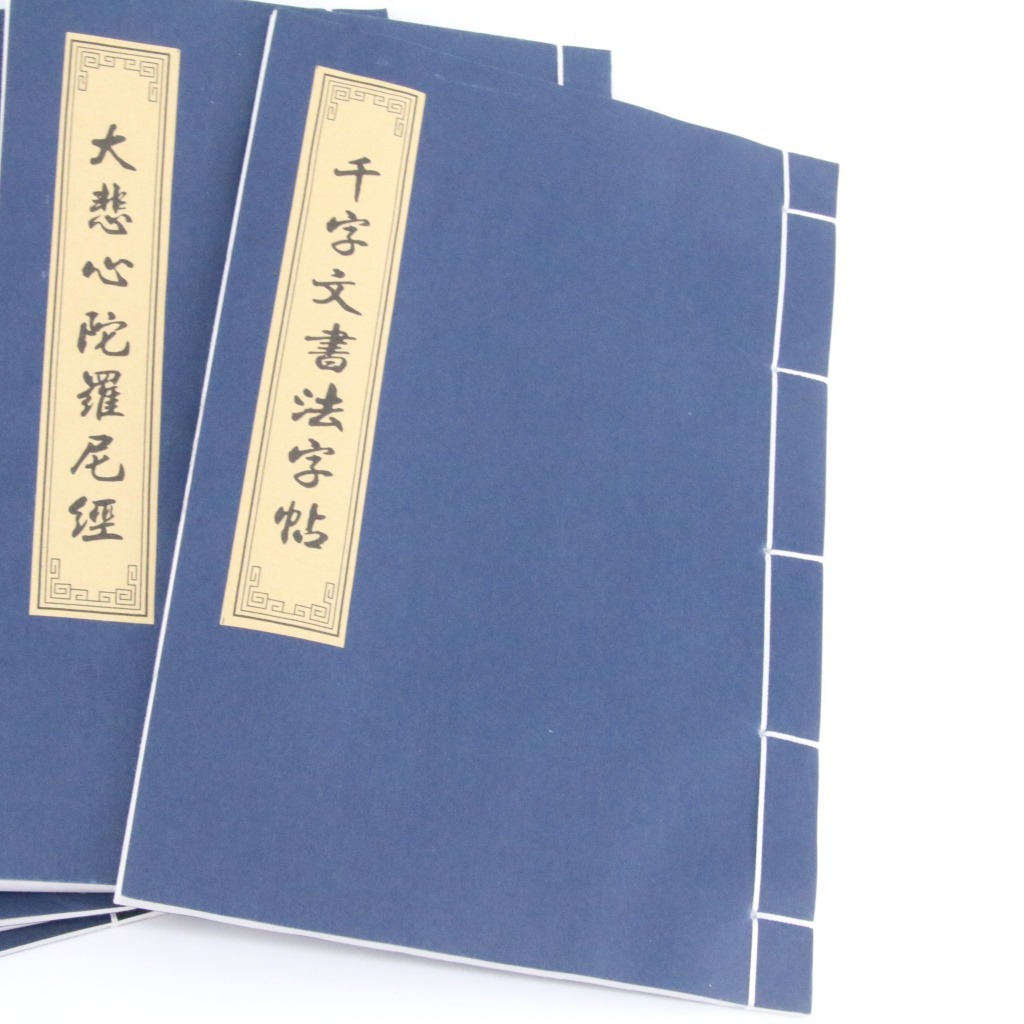 大悲心陀羅尼經
千字文書法字帖